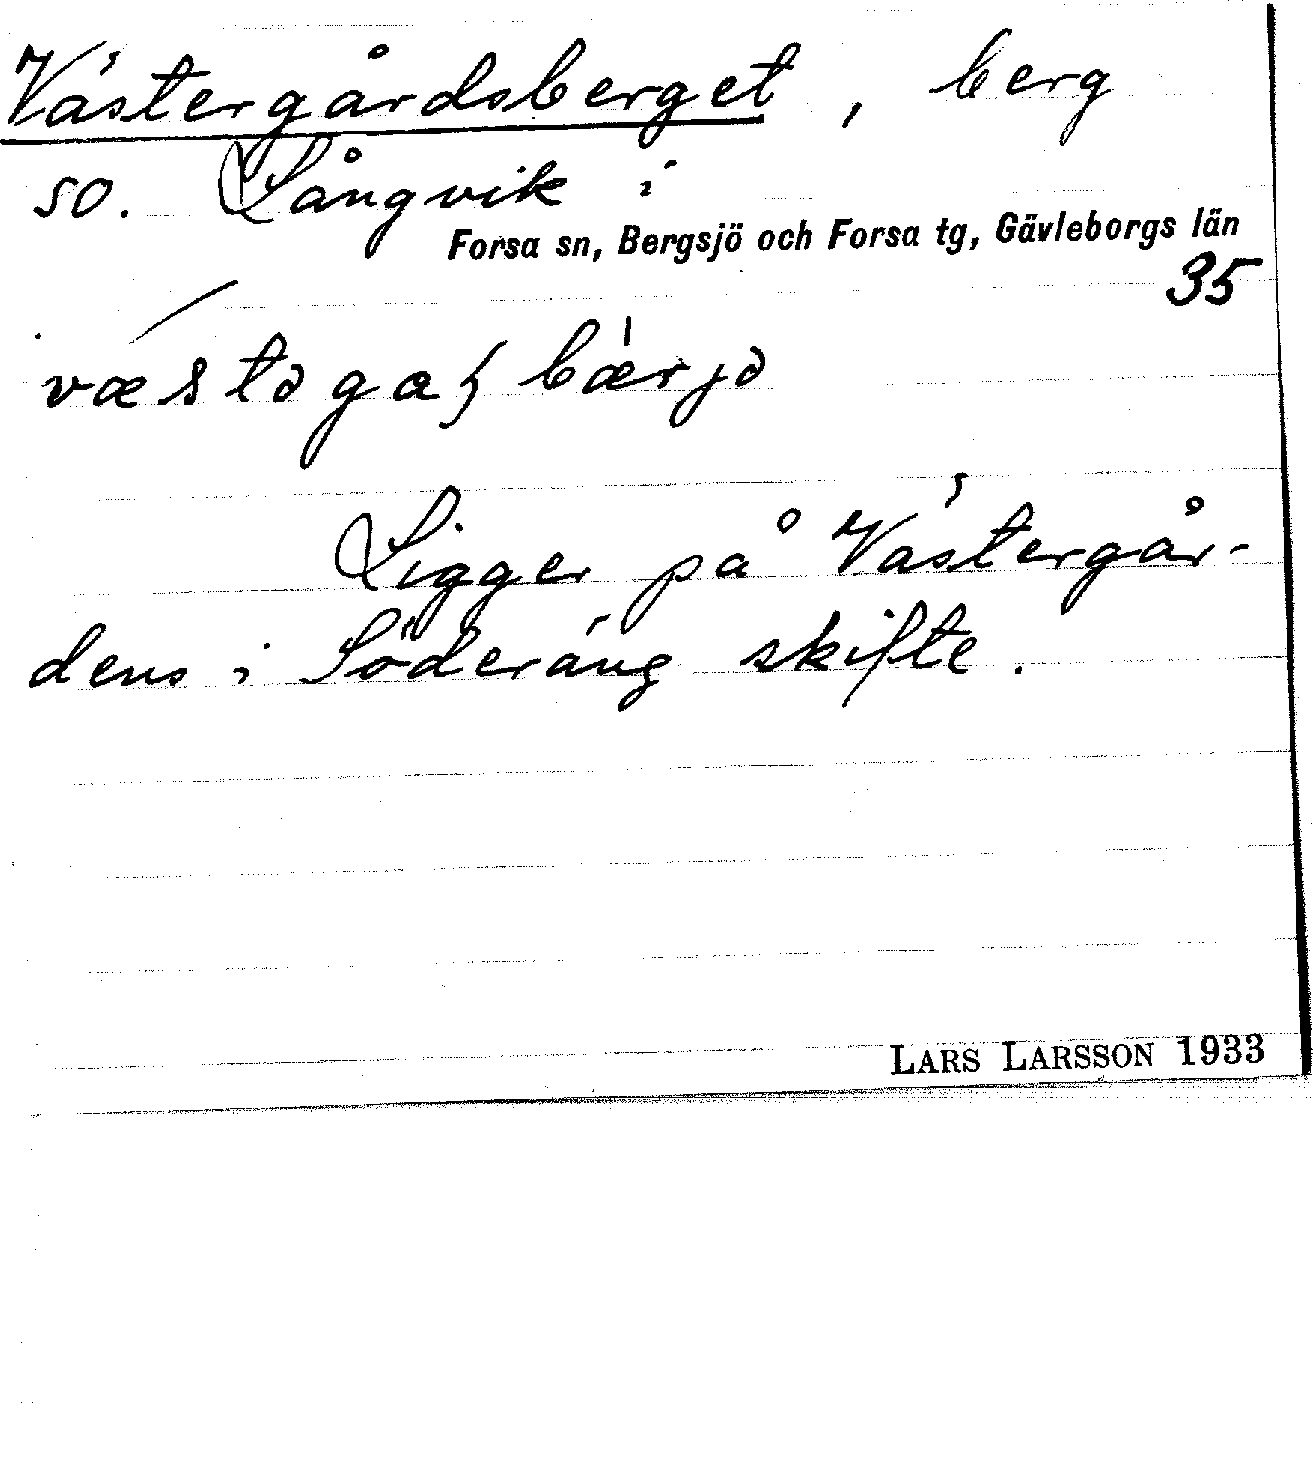 Västergårdsberget, berg
SO. Långvik i
Forsa sn, Bergsjö och Forsa tg, Gävleborgs län
35
Ligger på Västergår-
dens i Söderäng skifte.
LARS LARSSON 1933